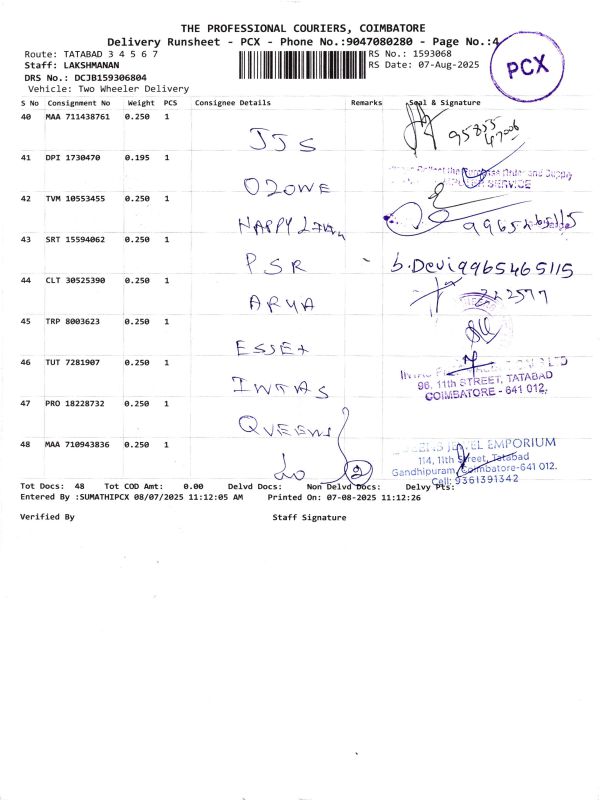 THE PROFESSIONAL COURIERS, COIMBATORE
Delivery Runsheet - PCX - Phone No.:9047080280 - Page No.:4
Route: TATABAD 3 4 5 6 7
RS No.: 1593068
Staff: LAKSHMANAN
RS Date: 07-Aug-2025
DRS No.: DCJB159306804
Vehicle: Two Wheeler Delivery
PCX
S No Consignment No Weight PCS Consignee Details Remarks Seal & Signature
40 MAA 711438761 0.250 1
JJS
95855
47006
41 DPI 1730470 0.195 1
OZONE
Order and Supply
SERVICE
42 TVM 10553455 0.250 1
HAPPY
9965465115
43 SRT 15594062 0.250 1
PSR
b.Devi 9965465115
44 CLT 30525390 0.250 1
ARYA
222577
45 TRP 8003623 0.250 1
ESSEX
46 TUT 7281907 0.250 1
INTAS
LTD
96, 11th STREET, TATABAD
COIMBATORE - 641 012.
47 PRO 18228732 0.250 1
QUEENS
48 MAA 710943836 0.250 1
2
JEWEL EMPORIUM
114, 11th Street, Tatabad
Gandhipuram, Coimbatore-641 012.
Cell: 9361391342
Tot Docs: 48 Tot COD Amt: 0.00 Delvd Docs: Non Delvd Docs: Delvy Pts:
Entered By :SUMATHIPCX 08/07/2025 11:12:05 AM Printed On: 07-08-2025 11:12:26
Verified By Staff Signature